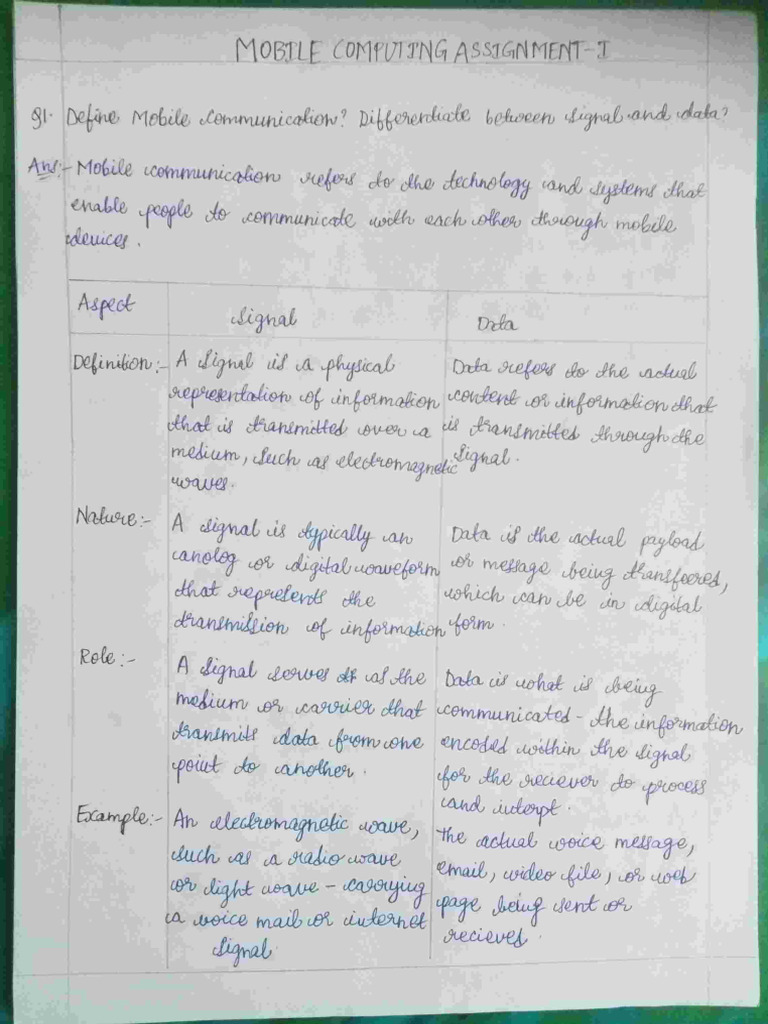 MOBILE COMPUTING ASSIGNMENT-I
Q1. Define Mobile Communication? Differentiate between signal and data?
Ans:- Mobile communication refers to the technology and systems that
enable people to communicate with each other through mobile
devices.
Aspect
Signal
Data
Definition:-
A signal is a physical
representation of information
that is transmitted over a
medium, such as electromagnetic
waves.
Data refers to the actual
content or information that
is transmitted through the
signal.
Nature:-
A signal is typically an
analog or digital waveform
that represents the
transmission of information
Data is the actual payload
or message being transfeered,
which can be in digital
form.
Role:-
A signal serves as the
medium or carrier that
transmits data from one
point to another.
Data is what is being
communicated - the information
encoded within the signal
for the reciever to process
and interpt.
Example:-
An electromagnetic wave,
such as a radio wave
or light wave - carrying
a voice mail or internet
signal.
The actual voice message,
email, video file, or web
page being sent or
recieves.